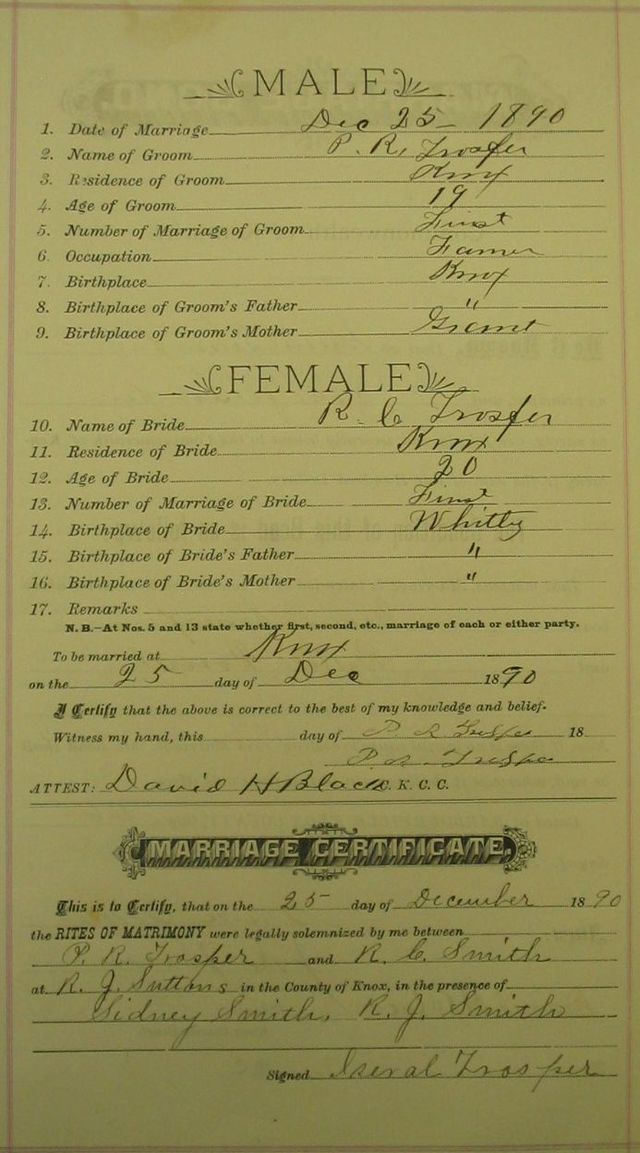 MALE
1. Date of Marriage Dec 25 1890
2. Name of Groom P. R. Trosper
3. Residence of Groom Knox
4. Age of Groom 19
5. Number of Marriage of Groom First
6. Occupation Famer
7. Birthplace Knox
8. Birthplace of Groom's Father "
9. Birthplace of Groom's Mother
FEMALE
10. Name of Bride R. C Trosper
11. Residence of Bride Knox
12. Age of Bride 20
13. Number of Marriage of Bride First
14. Birthplace of Bride Whitly
15. Birthplace of Bride's Father "
16. Birthplace of Bride's Mother "
17. Remarks
N. B.—At Nos. 5 and 13 state whether first, second, etc., marriage of each or either party.
To be married at Knox
on the 25 day of Dec 1890
I Certify that the above is correct to the best of my knowledge and belief.
Witness my hand, this day of P R Trosper 18
P. R. Trosper
ATTEST: David H Black C. K. C. C.
MARRIAGE CERTIFICATE.
This is to Certify, that on the 25 day of December 1890
the RITES OF MATRIMONY were legally solemnized by me between
P. R. Trosper and R. C. Smith
at R. J. Suttons in the County of Knox, in the presence of
Sidney Smith, R. J. Smith
Signed Iseral Trosper